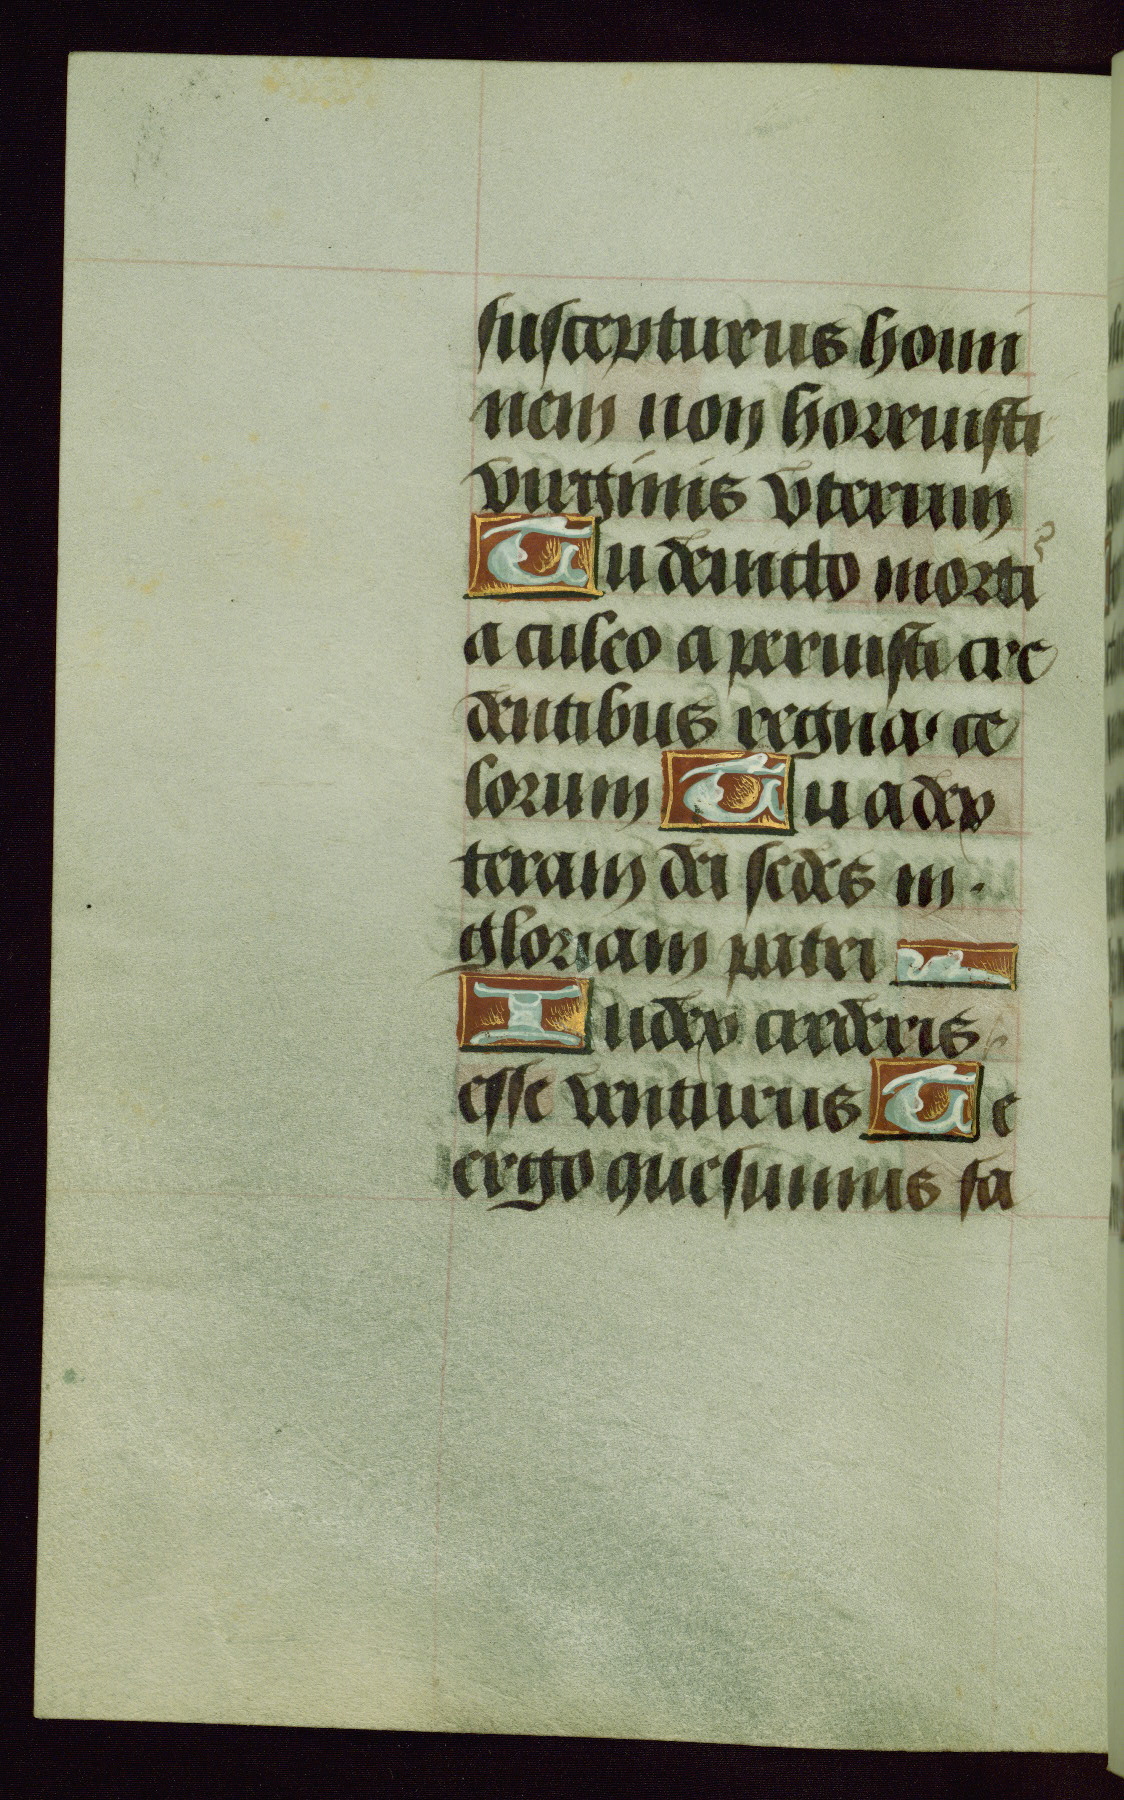 suscepturus homi
nem non horruisti
virginis vterum
Tu deuicto morti
aculeo aperuisti cre
dentibus regna ce
lorum Tu ad dex
teram dei sedes in
gloriam patri
Iudex crederis
esse venturus Te
ergo quesumus fa